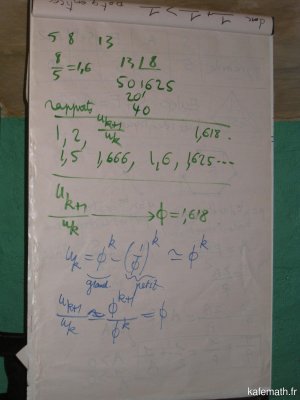 5 8 13
8/5 = 1,6 13 | 8
50 1625
20
40
rapports u_{k+1}/u_k 1,618.
1, 2,
1,5 1,666, 1,6, 1,625...
u_{k+1}/u_k → ϕ = 1,618
u_k = ϕ^k - ( )^k ≃ ϕ^k
grand petit
u_{k+1}/u_k ≈ ϕ^{k+1}/ϕ^k = ϕ
kafemath.fr